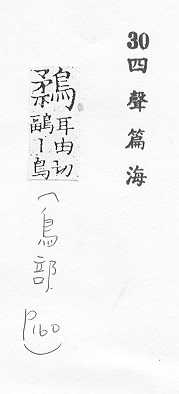 30四聲篇海
鶔 耳由切
鶝｜鳥
(鳥部 P160)